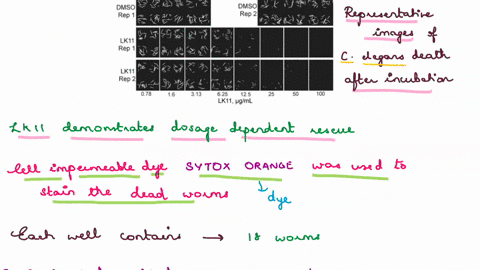 DMSO
Rep 1
DMSO
Rep 2
LK11
Rep 1
LK11
Rep 2
0.78 1.6 3.13 6.25 12.5 25 50 100
LK11, µg/mL
Representative
images of
C. elegans death
after incubation
LK11 demonstrates dosage dependent rescue
Cell impermeable dye SYTOX ORANGE was used to
stain the dead worms
dye
Each well contains → 18 worms